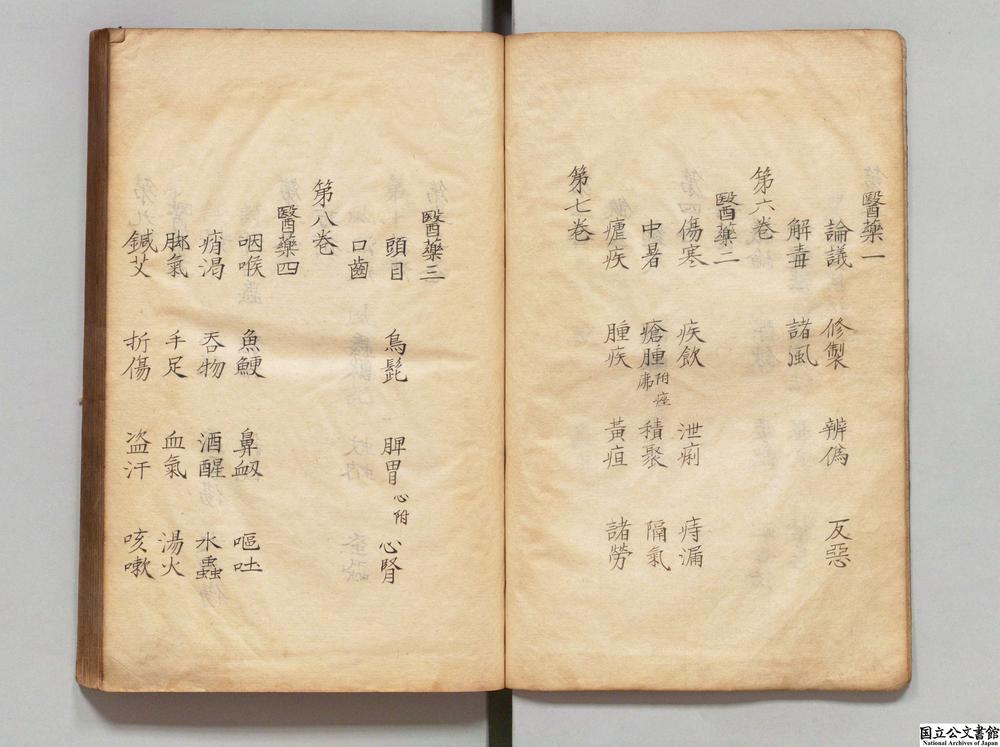 醫藥一
論議 修製 辨偽 反惡
解毒 諸風
第六卷
醫藥二
傷寒 疾飲 泄痢 痔漏
中暑 瘡腫附痤疿 積聚 隔氣
瘧疾 腫疾 黃疸 諸勞
第七卷
醫藥三
頭目 烏髭 脾胃心附 心腎
口齒
第八卷
醫藥四
咽喉 魚鯁 鼻衂 嘔吐
痟渴 吞物 酒醒 水蠱
脚氣 手足 血氣 湯火
鍼艾 折傷 盗汗 咳嗽
国立公文書館
National Archives of Japan